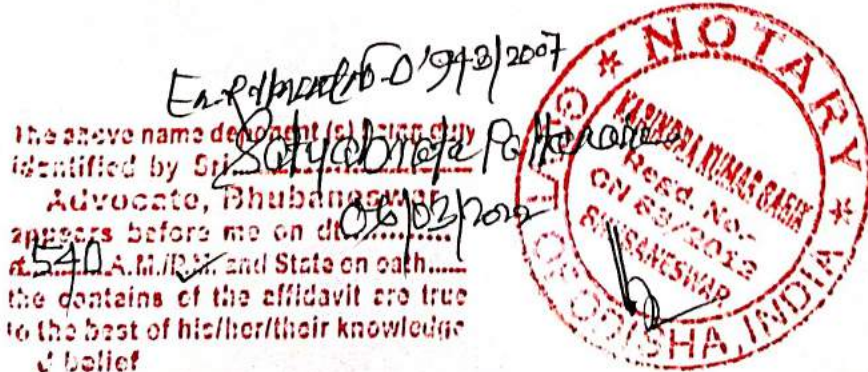 En. Rolment No-O'943/2007
The above name deponent (s) being duly
identified by Sri Satyabrata Pattanaik
Advocate, Bhubaneswar
appears before me on dt. 06/02/2022
at 540 A.M./P.M. and State on oath......
the contains of the affidavit are true
to the best of his/her/their knowledge
d belief
NOTARY
KUMAR
Regd. No.-
ON 63/2012
BHUBANESWAR
GOVT. OF ODISHA, INDIA